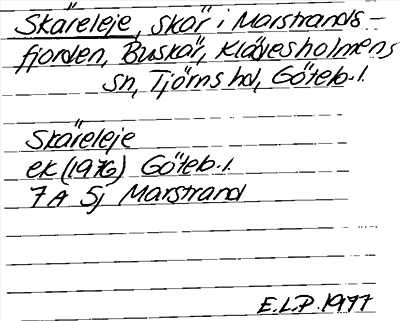 Skäreleje, skär i Marstrands-
fjorden, Buskär, Klädesholmens
sn, Tjörns hd, Göteb.l.
Skäreleje
ek (1976) Göteb.l.
7A 5j Marstrand
E.L.P. 1977